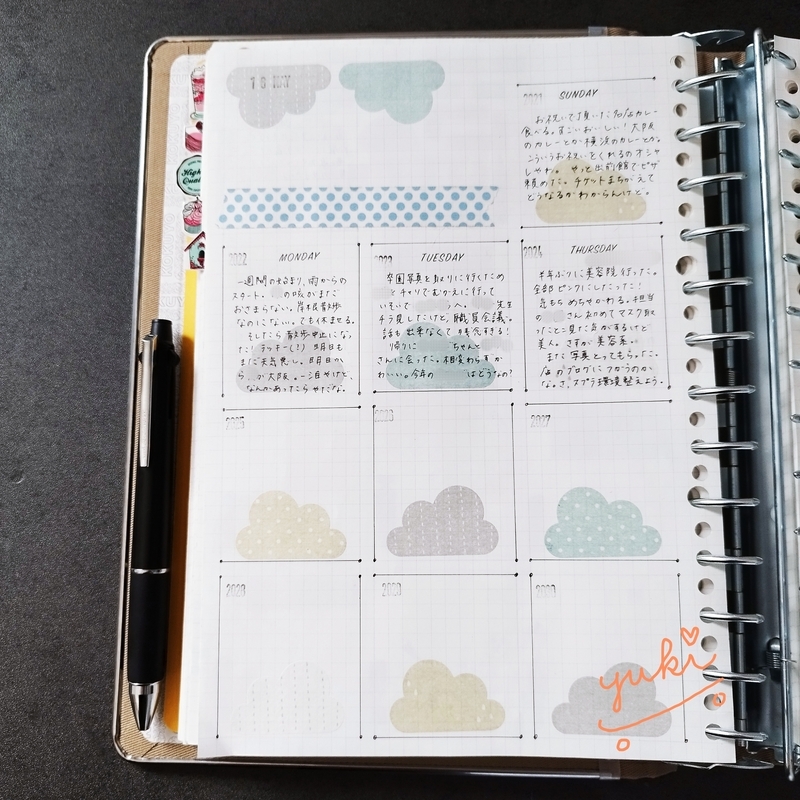 16 MAY
2021 SUNDAY
お祝いで頂いた名店カレー
食べる。すごいおいしい！大阪
のカレーとか横浜のカレーとか。
こういうお祝いをくれるのオシャ
レやわ。やっと出前館でピザ
頼めた。チケットまちがえて
どうなるかわからんけど。
2022 MONDAY
一週間の始まり、雨からの
スタート。の咳がまだ
おさまらない。岸根散歩
なのにない。ても休ませる。
そしたら散歩中止になっ
た！ラッキー(！)明日も
まだ天気悪し。明日か
ら、が大阪。一泊やけど、
なんかあったらやだな。
2023 TUESDAY
卒園写真を取りに行くため
とチャリでむかえに行って
いそいで へ。先生
チラ見したけど、職員会議。
話も出来なくて残念すぎる！
帰りに ちゃんと
さんに会った。相変わらずか
わいい。今年の はどうなの？
2024 THURSDAY
半年ぶりに美容院行った。
全部ピンクにしたった！
気もちめちゃかわる。担当
の さん初めてマスク取
ったとこ見た気がするけど
美人。さすが美容系。
また写真とってもらった。
店のブログにつかうのか
な。さ、スプラ環境整えよう。
2025
2026
2027
2028
2029
2030
yuki